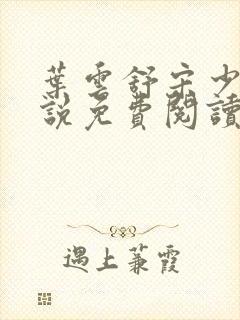 葉雲舒宋少
說免費閱讀
遇上蒹霞